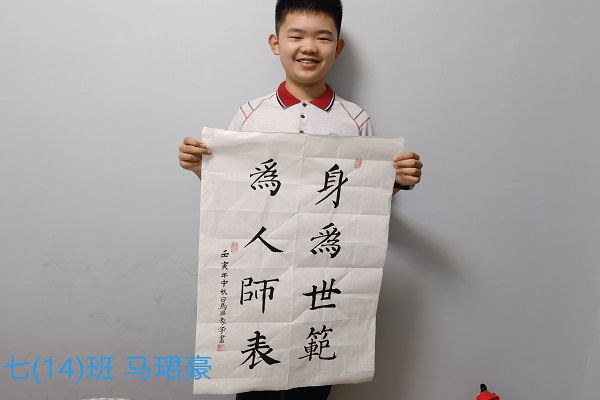 身為世範
為人師表
壬寅年中秋白馬珺豪書
七(14)班 马珺豪